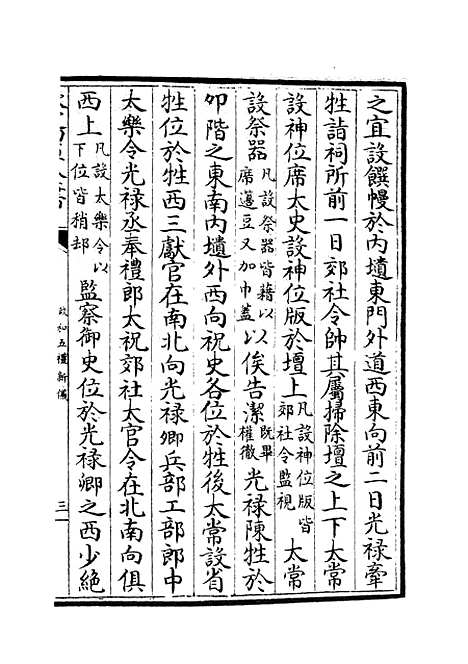 之宜設饌幔於内壝東門外道西東向前二日光禄牽
牲詣祠所前一日郊社令帥其屬掃除壇之上下太常
設神位席太史設神位版於壇上凡設神位版皆郊社令監視太常
設祭器凡設祭器皆藉以席籩豆又加巾蓋以俟告潔既畢權徹光禄陳牲於
卯階之東南内壝外西向祝史各位於牲後太常設省
牲位於牲西三獻官在南北向光禄卿兵部工部郎中
太樂令光禄丞奉禮郎太祝郊社太官令在北南向俱
西上凡設太樂令以下位皆稍却監察御史位於光禄卿之西少絶
政和五禮新儀
三